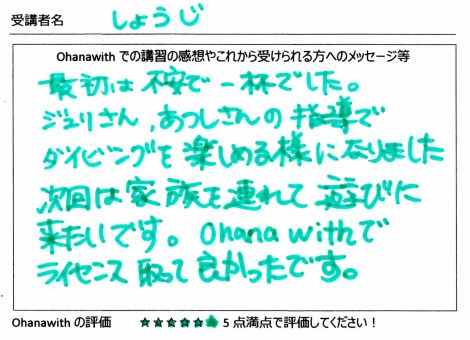 受講者名 しょうじ
Ohanawith での講習の感想やこれから受けられる方へのメッセージ等
最初は不安で一杯でした。
ジュリさん、あつしさんの指導で
ダイビングを楽しめる様になりました
次回は家族を連れて遊びに
来たいです。Ohana withで
ライセンス取って良かったです。
Ohanawith の評価 ★★★★★ 5 点満点で評価してください！